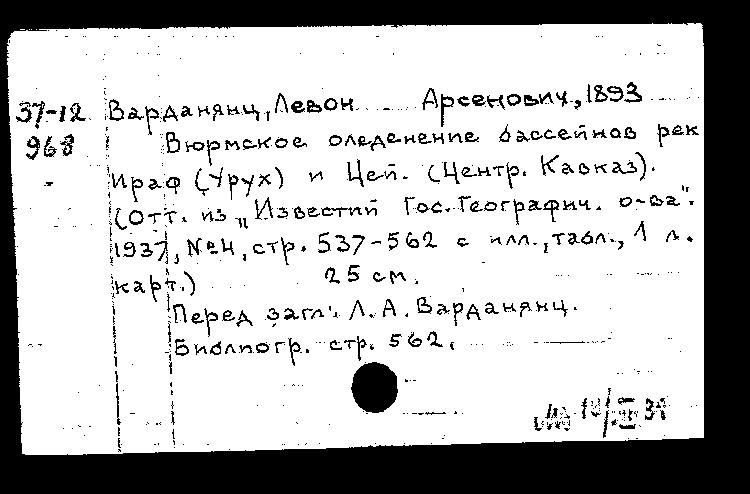 37-12 Варданянц, Левон Арсенович, 1893
968 Вюрмское оледенение бассейнов рек
Ираф (Урух) и Цей. (Центр. Кавказ).
(Отт. из „Известий Гос. Географич. о-ва".
1937, №4, стр. 537-562 с илл., табл., 1 л.
карт.) 25 см.
Перед загл: Л. А. Варданянц.
Библиогр. стр. 562.